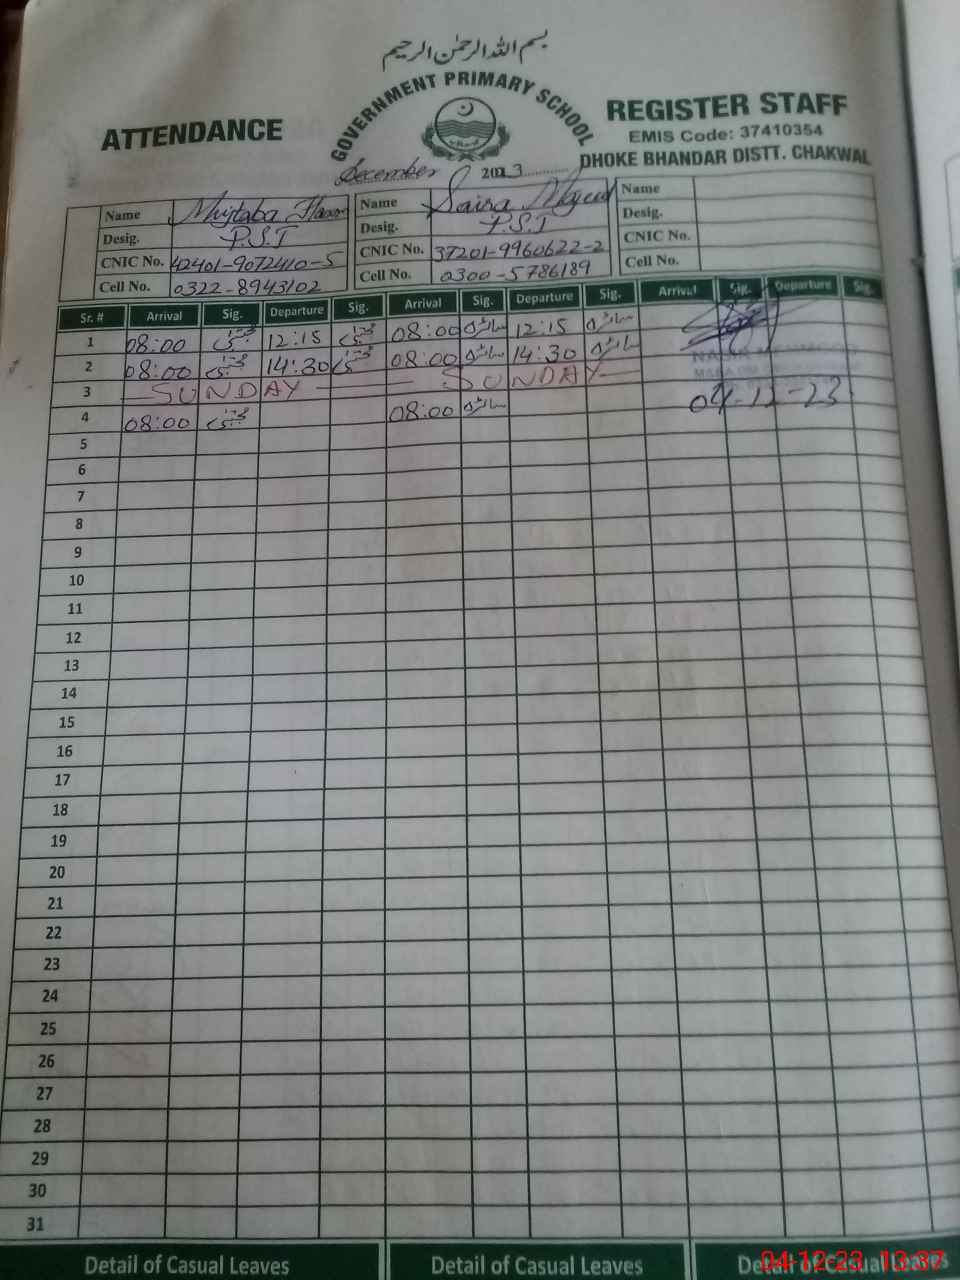 بسم الله الرحمن الرحیم
GOVERNMENT PRIMARY SCHOOL
ATTENDANCE
REGISTER STAFF
EMIS Code: 37410354
DHOKE BHANDAR DISTT. CHAKWAL
December 2023
Name Mujtaba Name Saira Majeed Name
Desig. P.S.T Desig. P.S.T Desig.
CNIC No. 42401-9072410-5 CNIC No. 37201-9960622-2 CNIC No.
Cell No. 0322-8943102 Cell No. 0300-5786189 Cell No.
Sr. # Arrival Sig. Departure Sig. Arrival Sig. Departure Sig. Arrival Sig. Departure Sig.
1 08:00 مجتبیٰ 12:15 مجتبیٰ 08:00 سائرہ 12:15 سائرہ
2 08:00 مجتبیٰ 14:30 مجتبیٰ 08:00 سائرہ 14:30 سائرہ
3 SUNDAY SUNDAY
4 08:00 مجتبیٰ 08:00 سائرہ 04-12-23
5
6
7
8
9
10
11
12
13
14
15
16
17
18
19
20
21
22
23
24
25
26
27
28
29
30
31
Detail of Casual Leaves Detail of Casual Leaves Detail of Casual Leaves
04-12-23 13:37